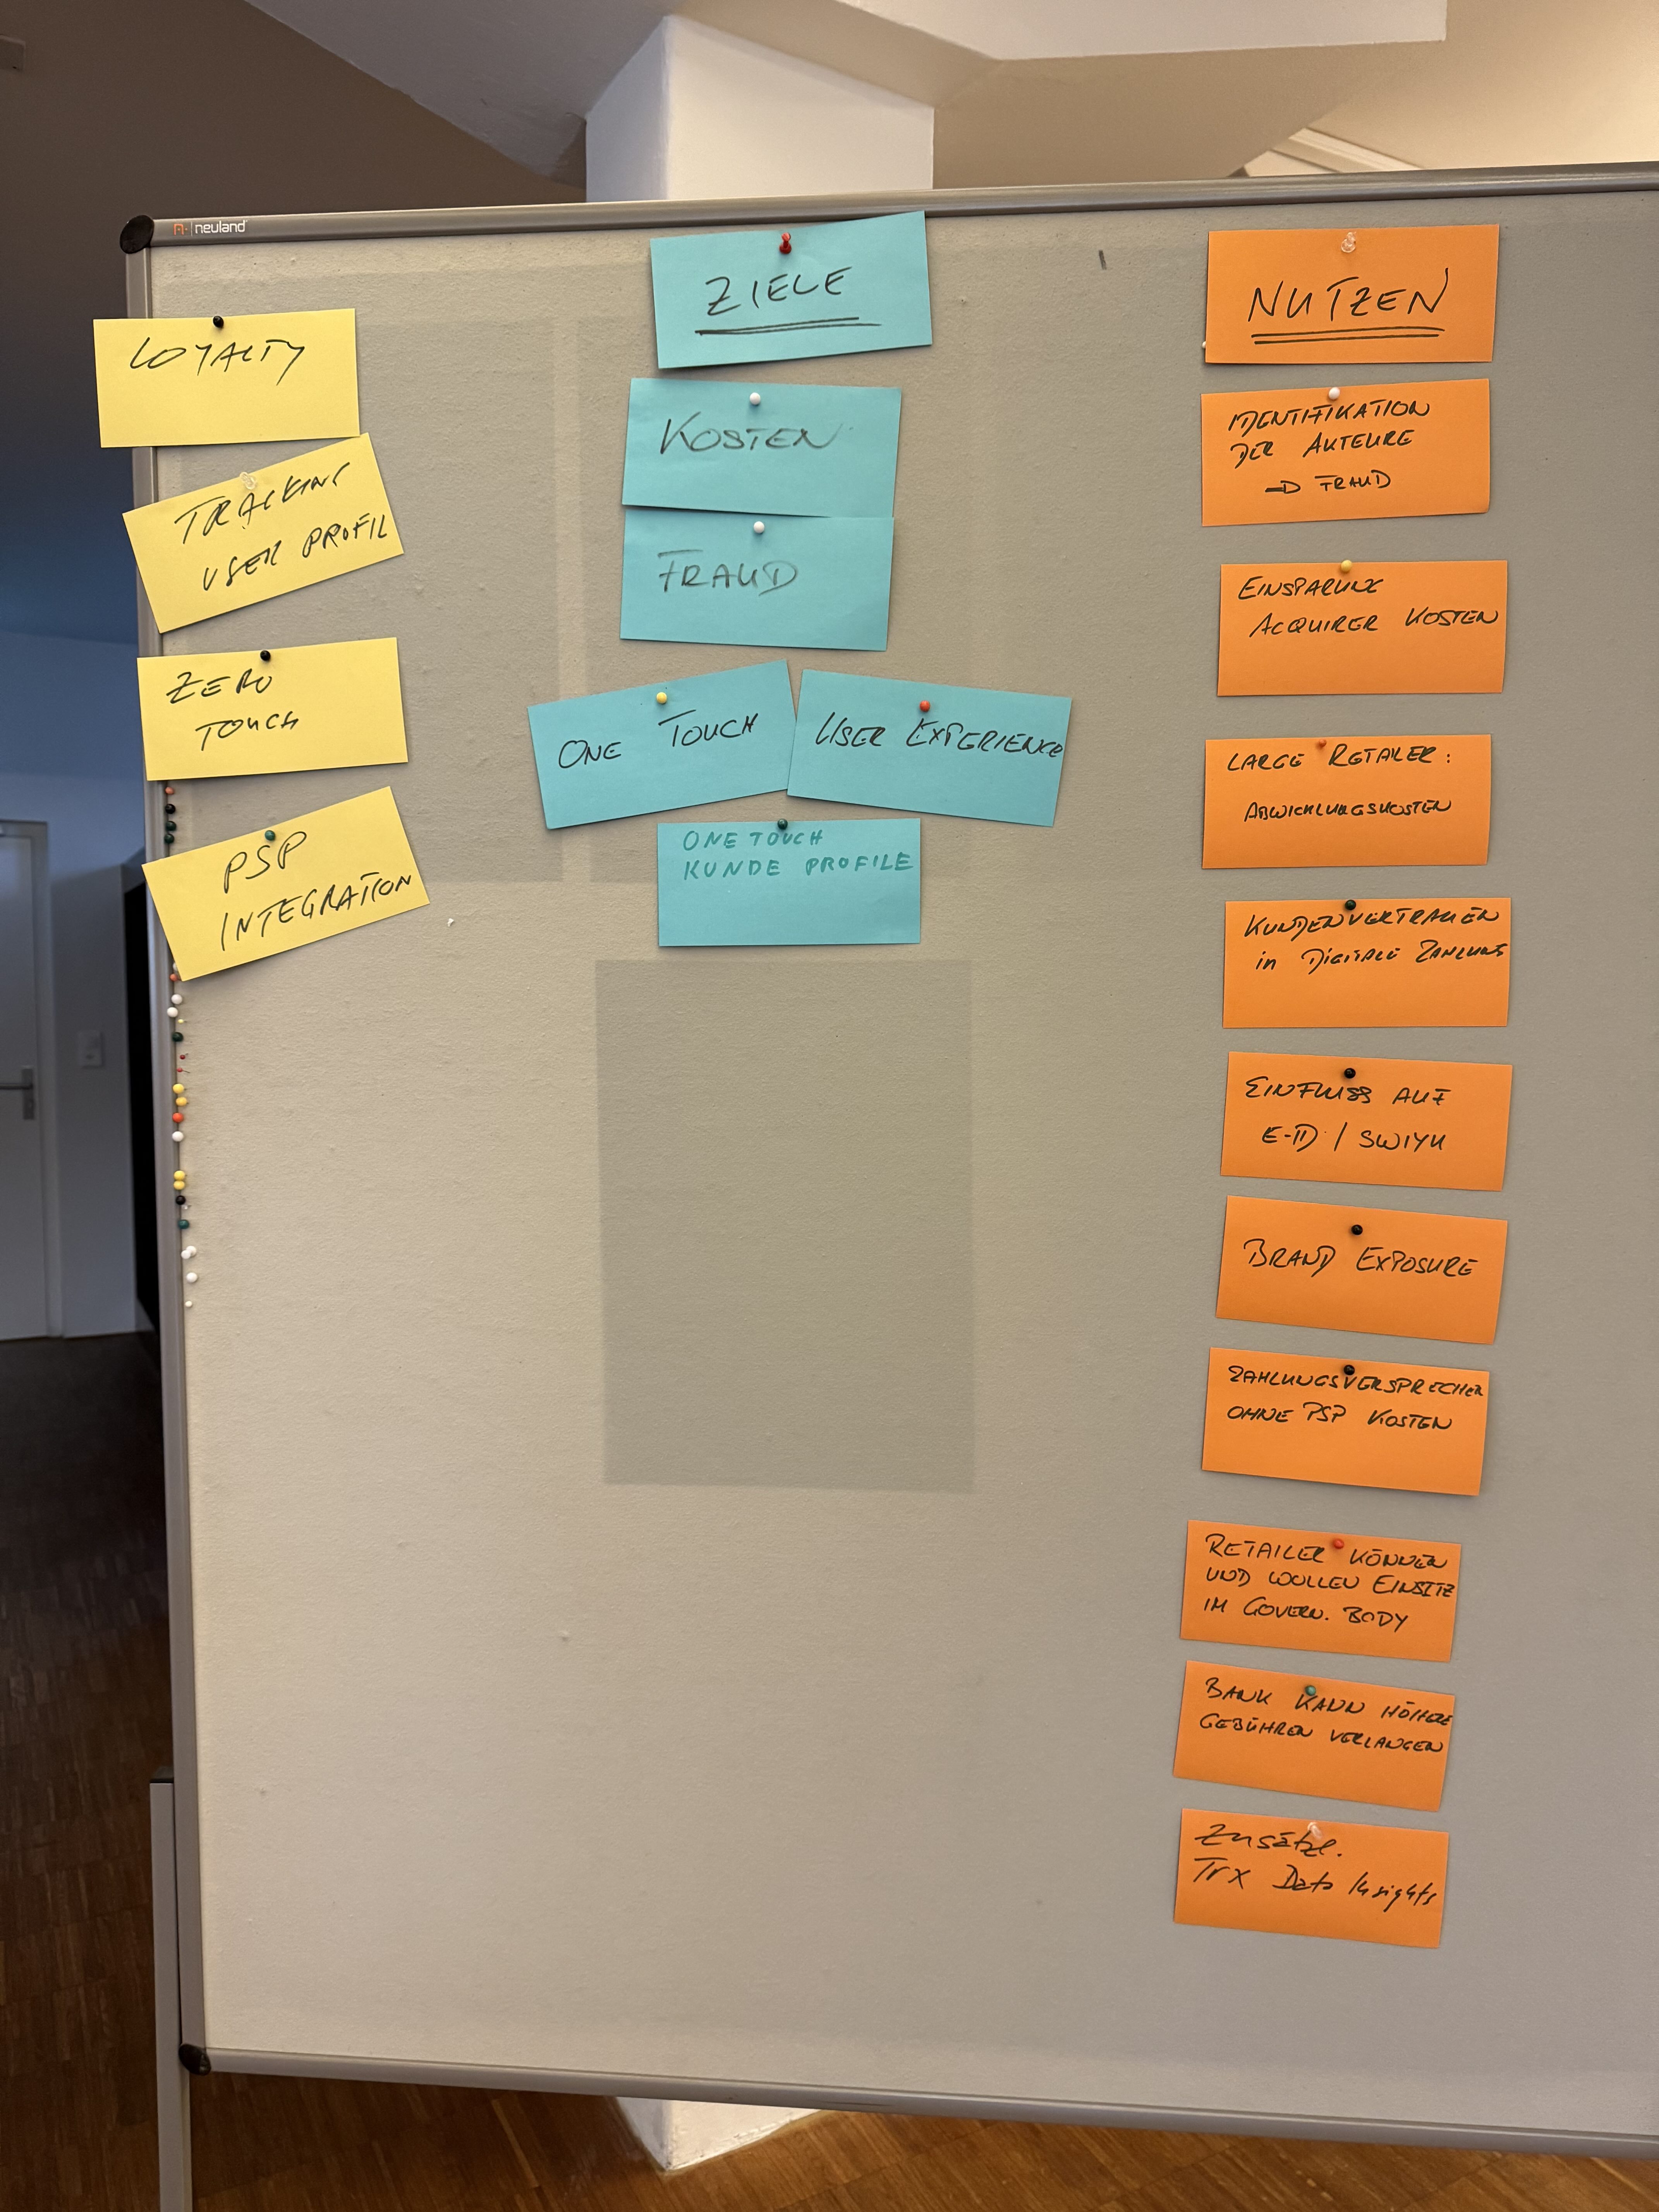 neuland
LOYALTY
TRACKING
USER PROFIL
ZERO
TOUCH
PSP
INTEGRATION
ZIELE
KOSTEN
FRAUD
ONE TOUCH
USER EXPERIENCE
ONE TOUCH
KUNDE PROFILE
NUTZEN
IDENTIFIKATION
DER AKTEURE
→ FRAUD
EINSPARUNG
ACQUIRER KOSTEN
LARGE RETAILER:
ABWICKLUNGSKOSTEN
KUNDENVERTRAUEN
in DIGITALE ZAHLUNG
EINFLUSS AUF
E-ID / SWIYU
BRAND EXPOSURE
ZAHLUNGSVERSPRECHEN
OHNE PSP KOSTEN
RETAILER KÖNNEN
UND WOLLEN EINSITZ
IM GOVERN. BODY
BANK KANN HÖHERE
GEBÜHREN VERLANGEN
Zusätzl.
Trx Data Insights